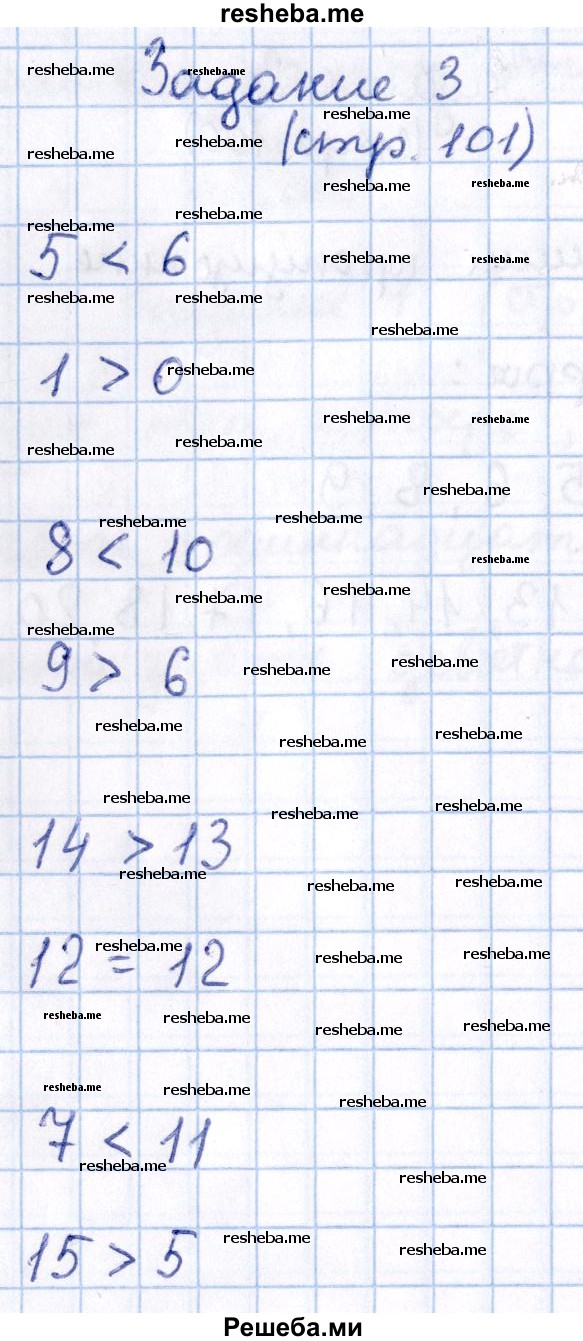 resheba.me
Задание 3
(стр. 101)
5 < 6
1 > 0
8 < 10
9 > 6
14 > 13
12 = 12
7 < 11
15 > 5
Решеба.ми